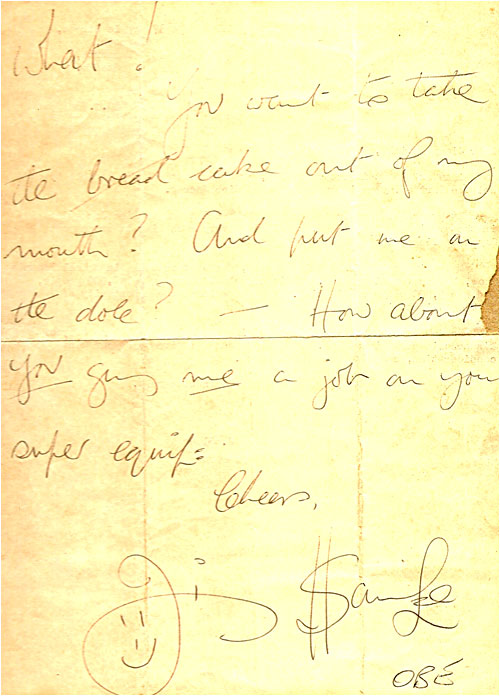 What!
You want to take
the bread cake out of my
mouth? And put me on
the dole? — How about
you giving me a job on you
super equip=
Cheers,
Jim Savile
OBE